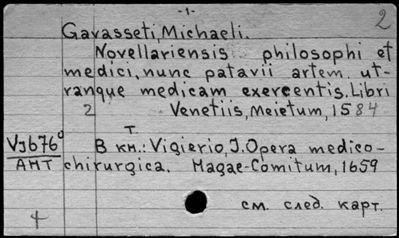 -1-
2
Gavasseti, Michaeli.
Novellariensis philosophi et
medici, nunc patavii artem ut-
ranque medicam exercentis. Libri
2 Venetiis, Meietum, 1584
т.
VJb76° В кн.: Vigierio, J. Opera medico-
AMT chirurgica. Hagae-Comitum, 1659
см. след. карт.
4